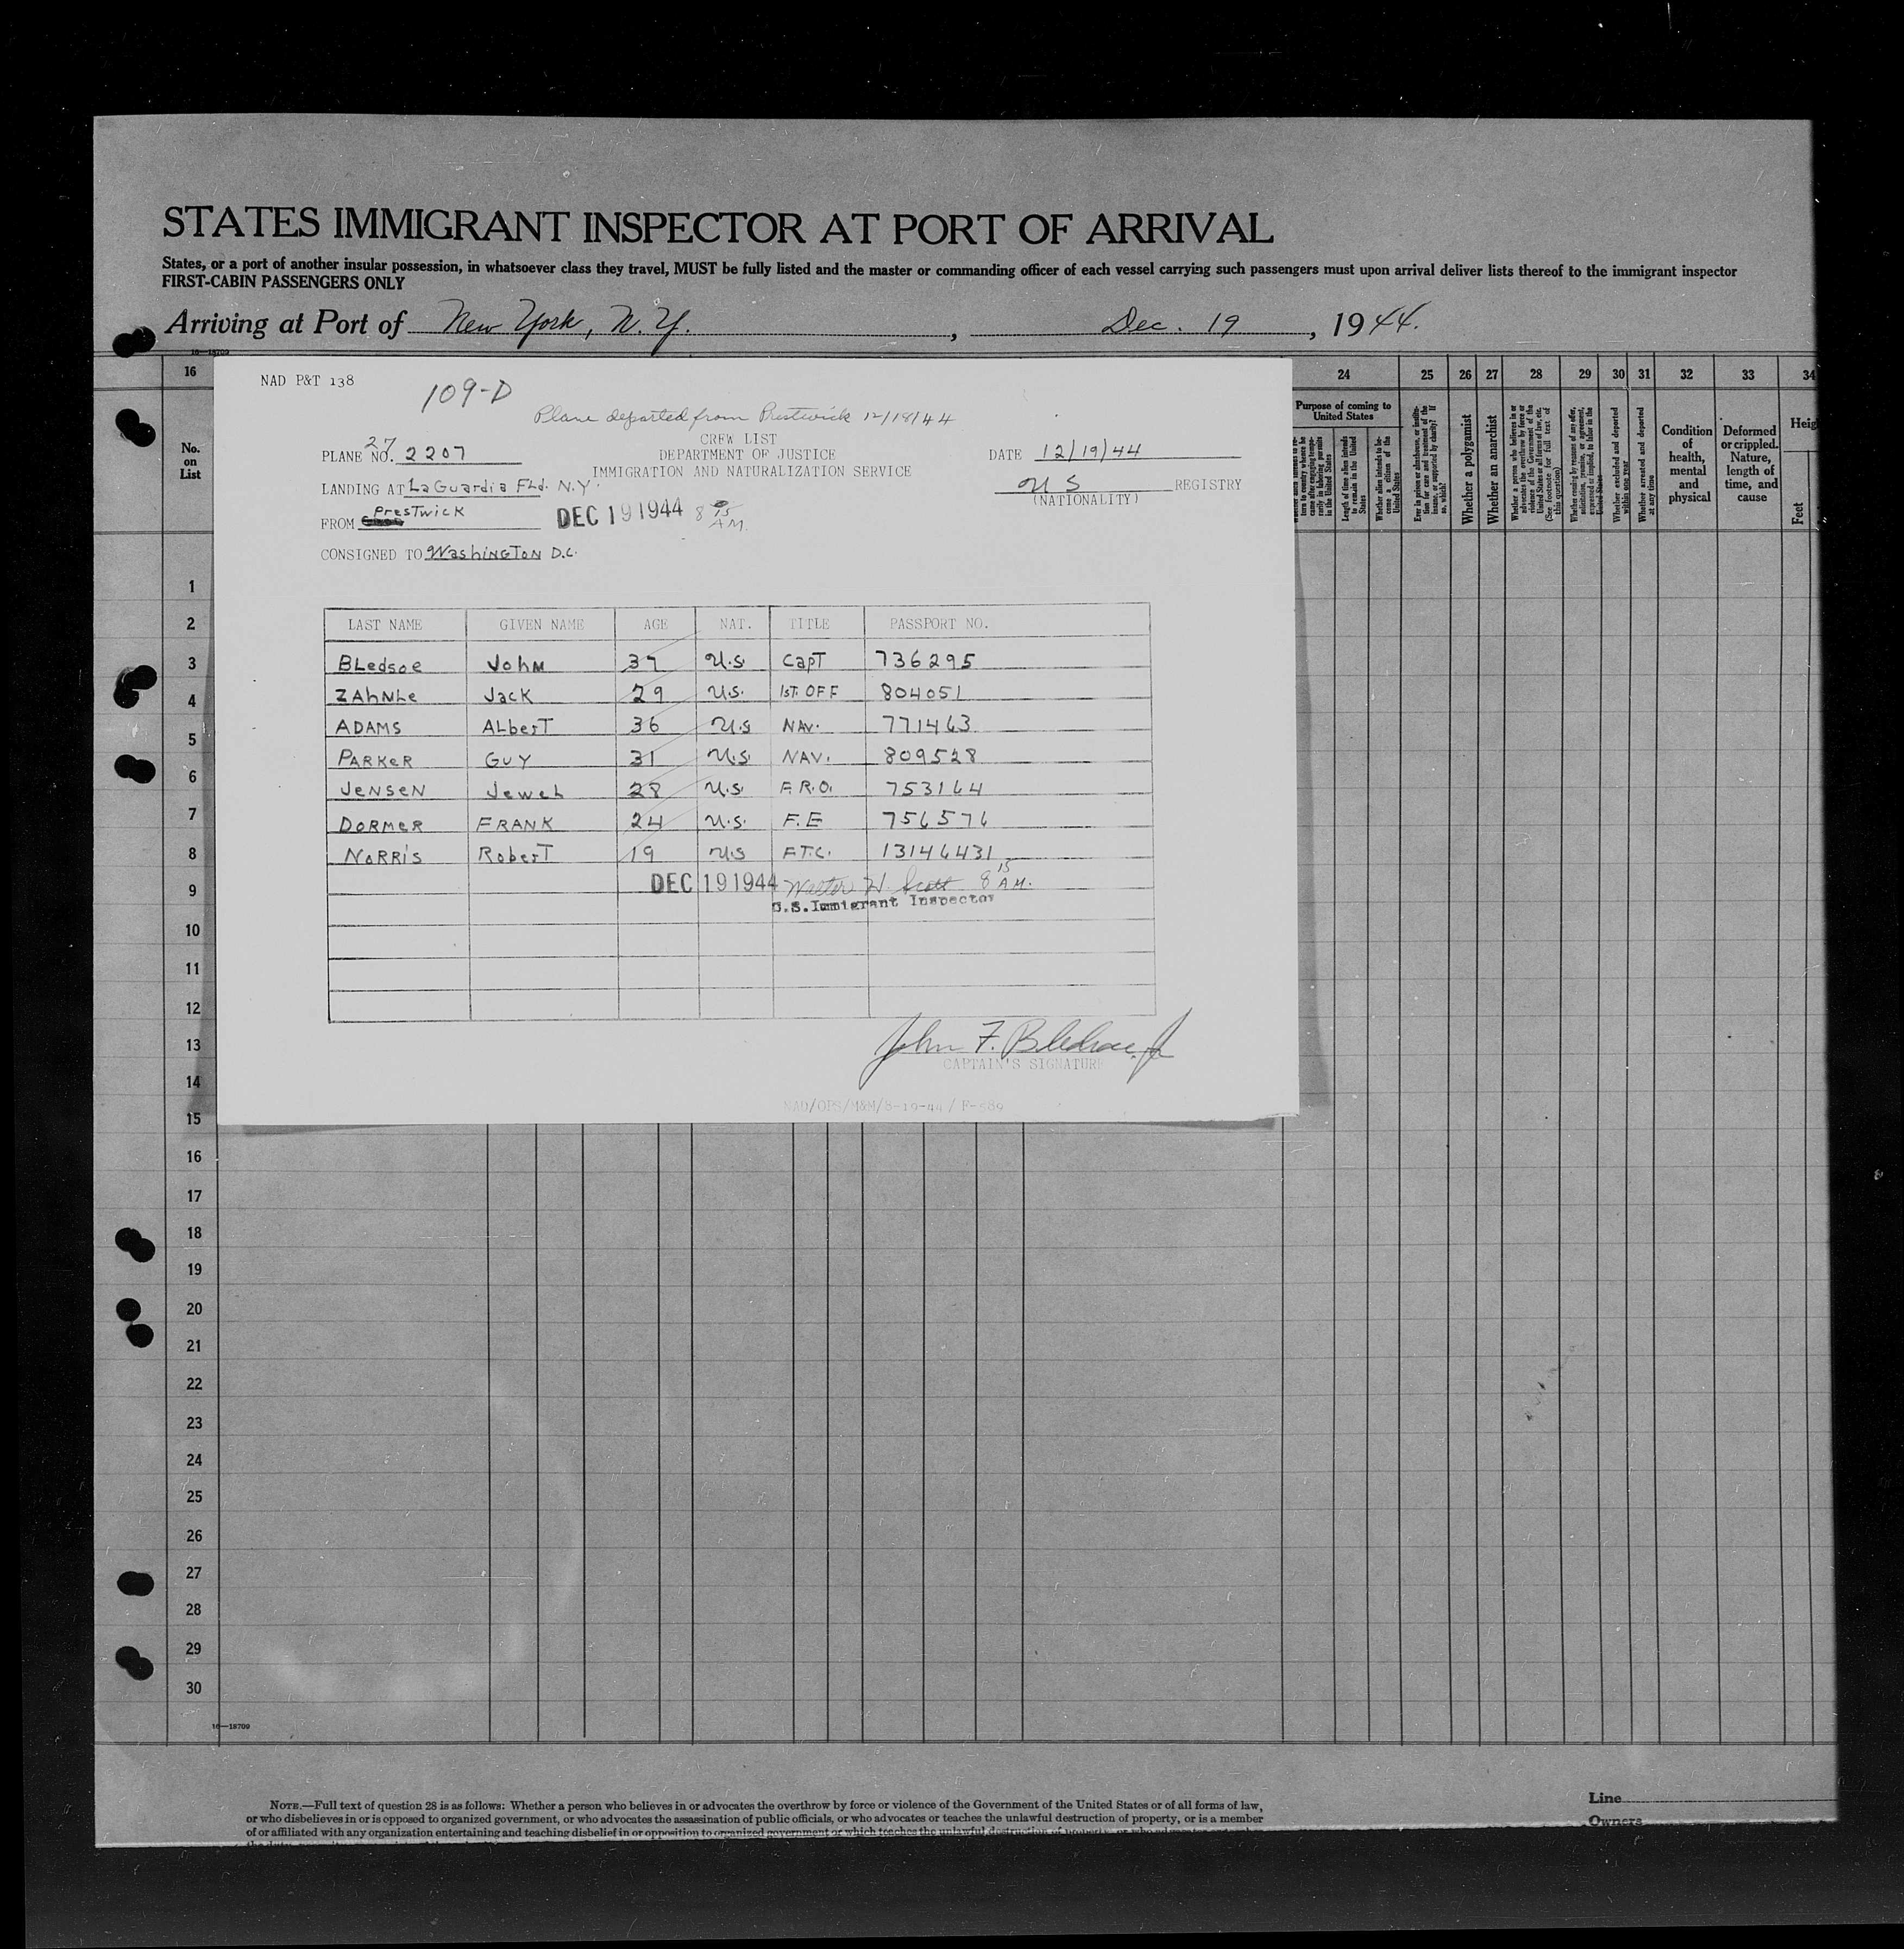 STATES IMMIGRANT INSPECTOR AT PORT OF ARRIVAL
States, or a port of another insular possession, in whatsoever class they travel, MUST be fully listed and the master or commanding officer of each vessel carrying such passengers must upon arrival deliver lists thereof to the immigrant inspector
FIRST-CABIN PASSENGERS ONLY
Arriving at Port of New York, N.Y., Dec. 19, 1944.
16—18709
16
No. on List
NAD P&T 138
109-D
Plane departed from Prestwick 12/18/44
CREW LIST
DEPARTMENT OF JUSTICE
IMMIGRATION AND NATURALIZATION SERVICE
PLANE NO. 27 2207
DATE 12/19/44
LANDING AT LaGuardia Fld. N.Y.
U S REGISTRY
(NATIONALITY)
FROM Prestwick
DEC 19 1944 8 15 A.M.
CONSIGNED TO Washington D.C.
LAST NAME GIVEN NAME AGE NAT. TITLE PASSPORT NO.
BLedsoe John 37 U.S. Capt 736295
ZAhNLe Jack 29 U.S. 1ST. OFF 804051
ADAMS ALberT 36 U.S NAV. 771463
PARKER GUY 31 U.S. NAV. 809528
JENSEN JeweL 28 U.S. F.R.O. 753164
DORMER FRANK 24 U.S. F.E 756576
NORRIS RoberT 19 U.S F.T.C. 13146431
DEC 19 1944 Walter H. Scott 8 15 A.M.
U.S. Immigrant Inspector
John F. Bledsoe, Jr
CAPTAIN'S SIGNATURE
NAD/OPS/M&M/8-19-44/F-589
24 25 26 27 28 29 30 31 32 33 34
Purpose of coming to United States
Length of time alien intends to remain in the United States
Whether alien intends to become a citizen of the United States
Whether a polygamist
Whether an anarchist
Whether excluded and deported within one year
Whether arrested and deported at any time
Condition of health, mental and physical
Deformed or crippled. Nature, length of time, and cause
Feet
1
2
3
4
5
6
7
8
9
10
11
12
13
14
15
16
17
18
19
20
21
22
23
24
25
26
27
28
29
30
16—18709
NOTE.—Full text of question 28 is as follows: Whether a person who believes in or advocates the overthrow by force or violence of the Government of the United States or of all forms of law,
or who disbelieves in or is opposed to organized government, or who advocates the assassination of public officials, or who advocates or teaches the unlawful destruction of property, or is a member
of or affiliated with any organization entertaining and teaching disbelief in or opposition to organized government or which teaches the unlawful destruction of
Line
Owners